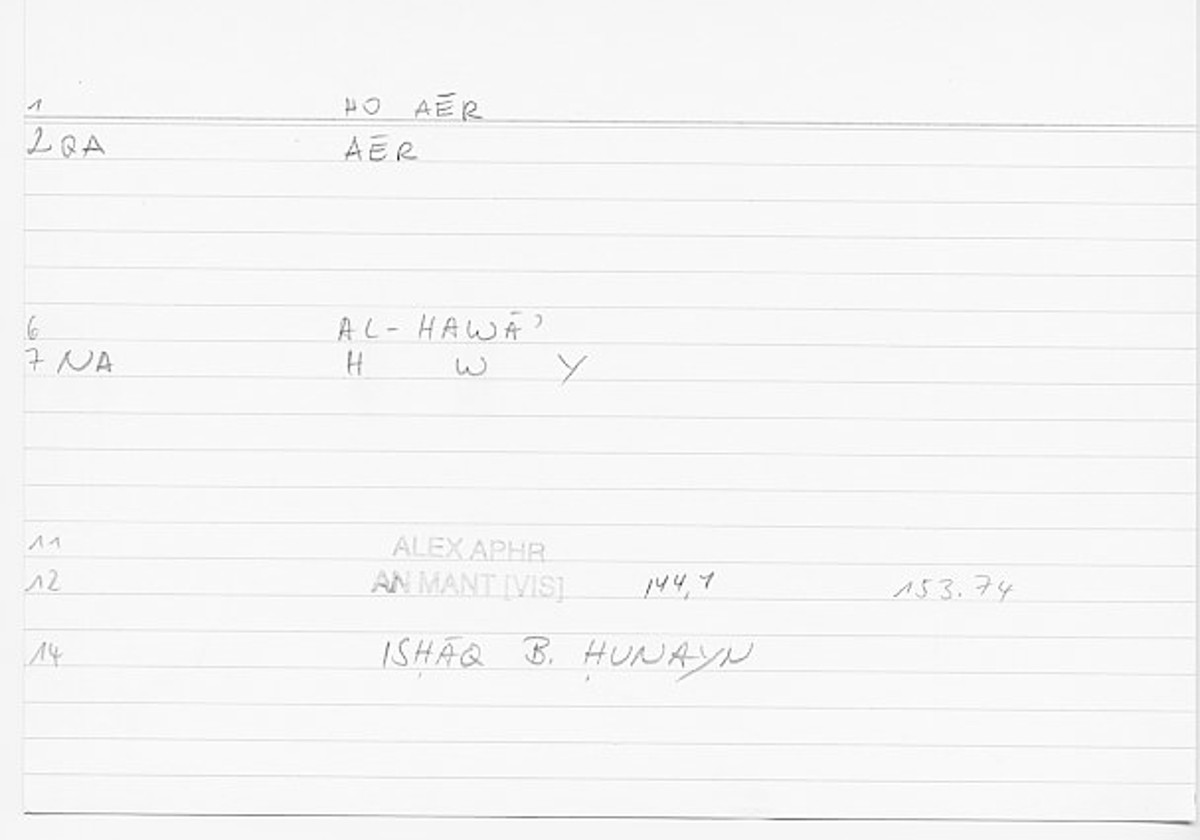 1 HO AĒR
2 QA AĒR
6 AL-HAWĀʾ
7 NA H W Y
11 ALEX APHR
12 AN MANT [VIS] 144,1 153.74
14 ISḤĀQ B. ḤUNAYN